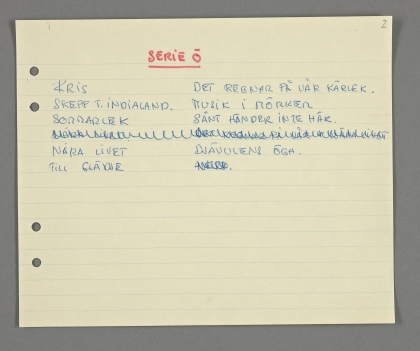 2
SERIE Ö
KRIS DET REGNAR PÅ VÅR KÄRLEK.
SKEPP T. INDIALAND. MUSIK I MÖRKER
SOMMARLEK SÅNT HÄNDER INTE HÄR.
NÄRA LIVET DJÄVULENS ÖGA.
TILL GLÄDJE